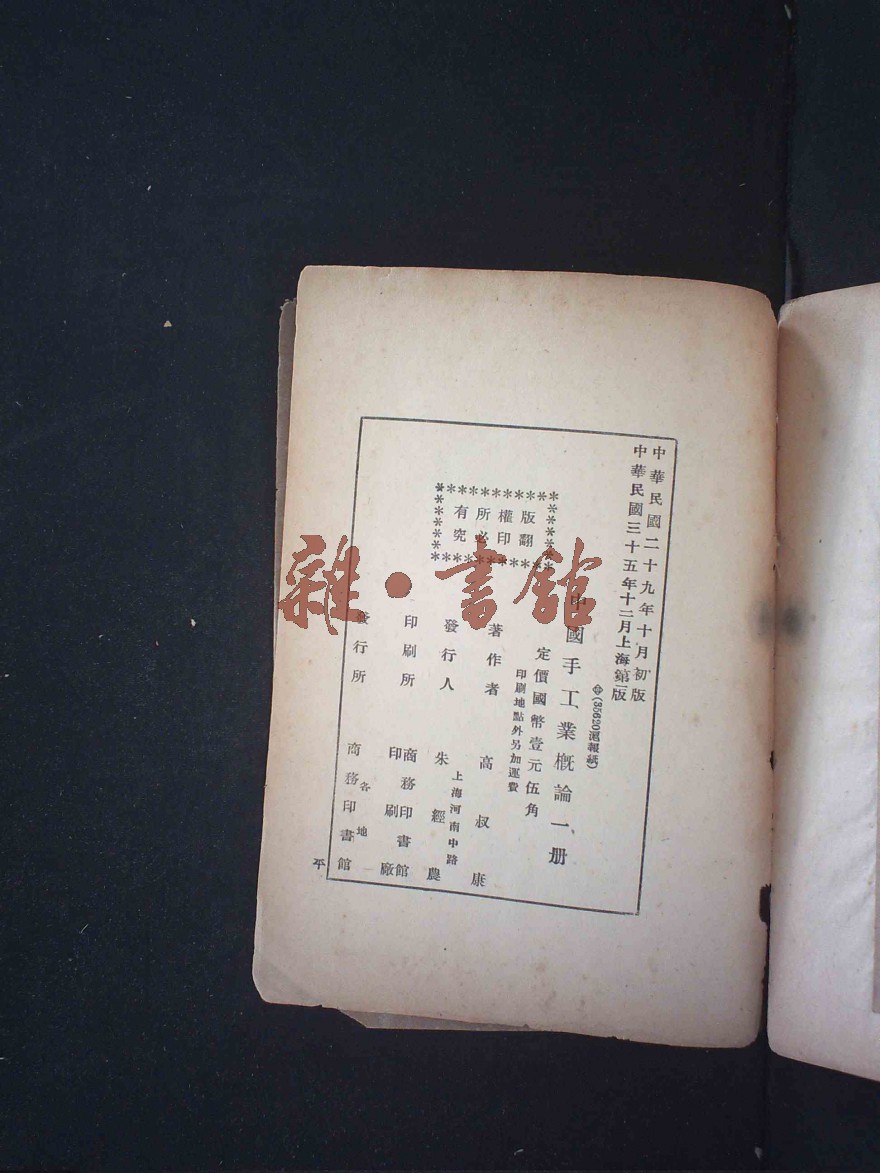 中華民國二十九年十月初版
中華民國三十五年十二月上海第一版
(35620滬報紙)
中國手工業概論一册
定價國幣壹元伍角
印刷地點外另加運費
版權所有
翻印必究
著作者 高叔康
發行人 朱經農
上海河南中路
印刷所 商務印書館印刷廠
發行所 商務印書館
各地
平
雜·書館